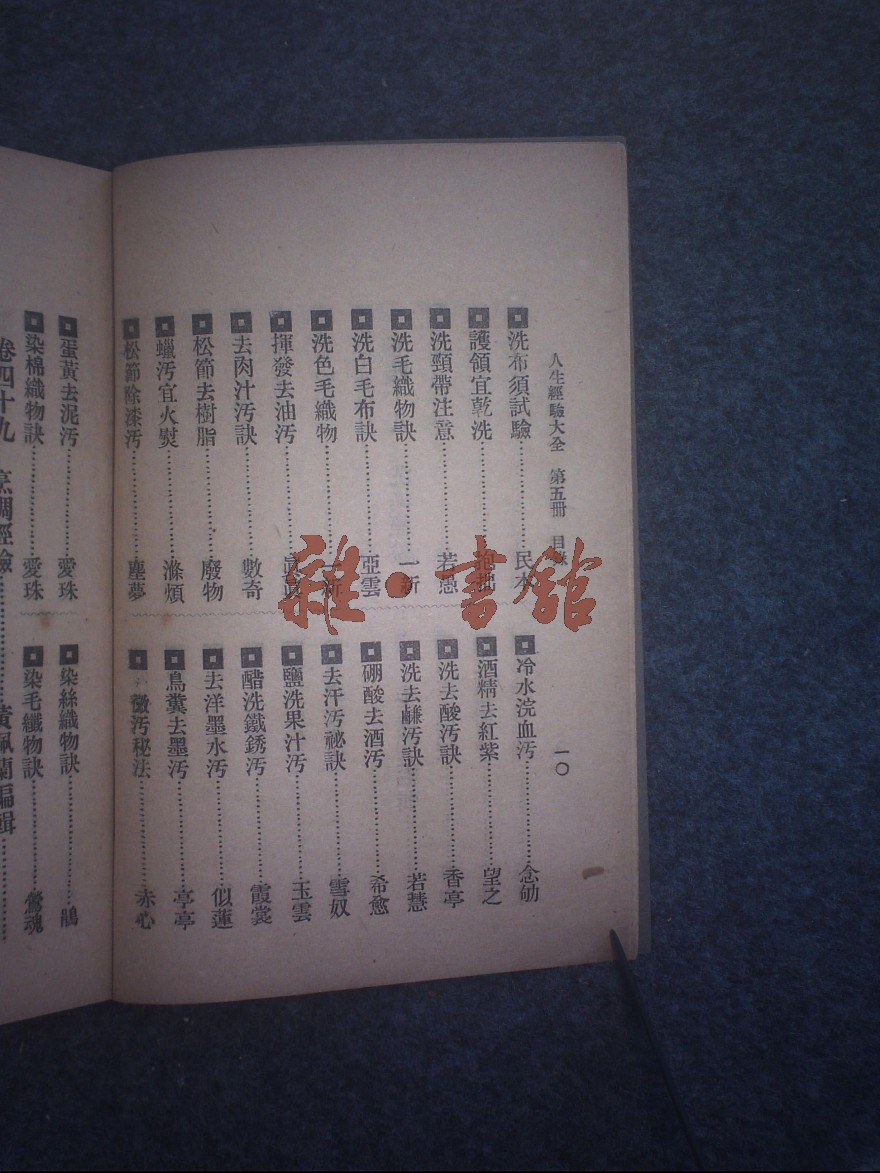 人生經驗大全 第五冊 目錄
一〇
洗布須試驗 民本
護領宜乾洗 抱拙
洗頸帶注意 若愚
洗毛織物訣 一新
洗白毛布訣 亞雲
洗色毛織物 一新
揮發去油汚 眞眞
去肉汁汚訣 數奇
松節去樹脂 廢物
蠟汚宜火熨 滌煩
松節除漆汚 塵夢
冷水浣血汚 念劬
酒精去紅紫 望之
洗去酸汚訣 香亭
洗去鹻汚訣 若慧
硼酸去酒汚 希愈
去汗汚祕訣 雪奴
鹽洗果汁汚 玉雲
醋洗鐵銹汚 霞裳
去洋墨水汚 似蓮
鳥糞去墨汚 亭亭
黴汚秘法 赤心
蛋黃去泥汚 愛珠
染棉織物訣 愛珠
染絲織物訣 鵑
染毛織物訣 驚魂
卷四十九 烹調經驗 黃佩蘭編輯
雜·書館